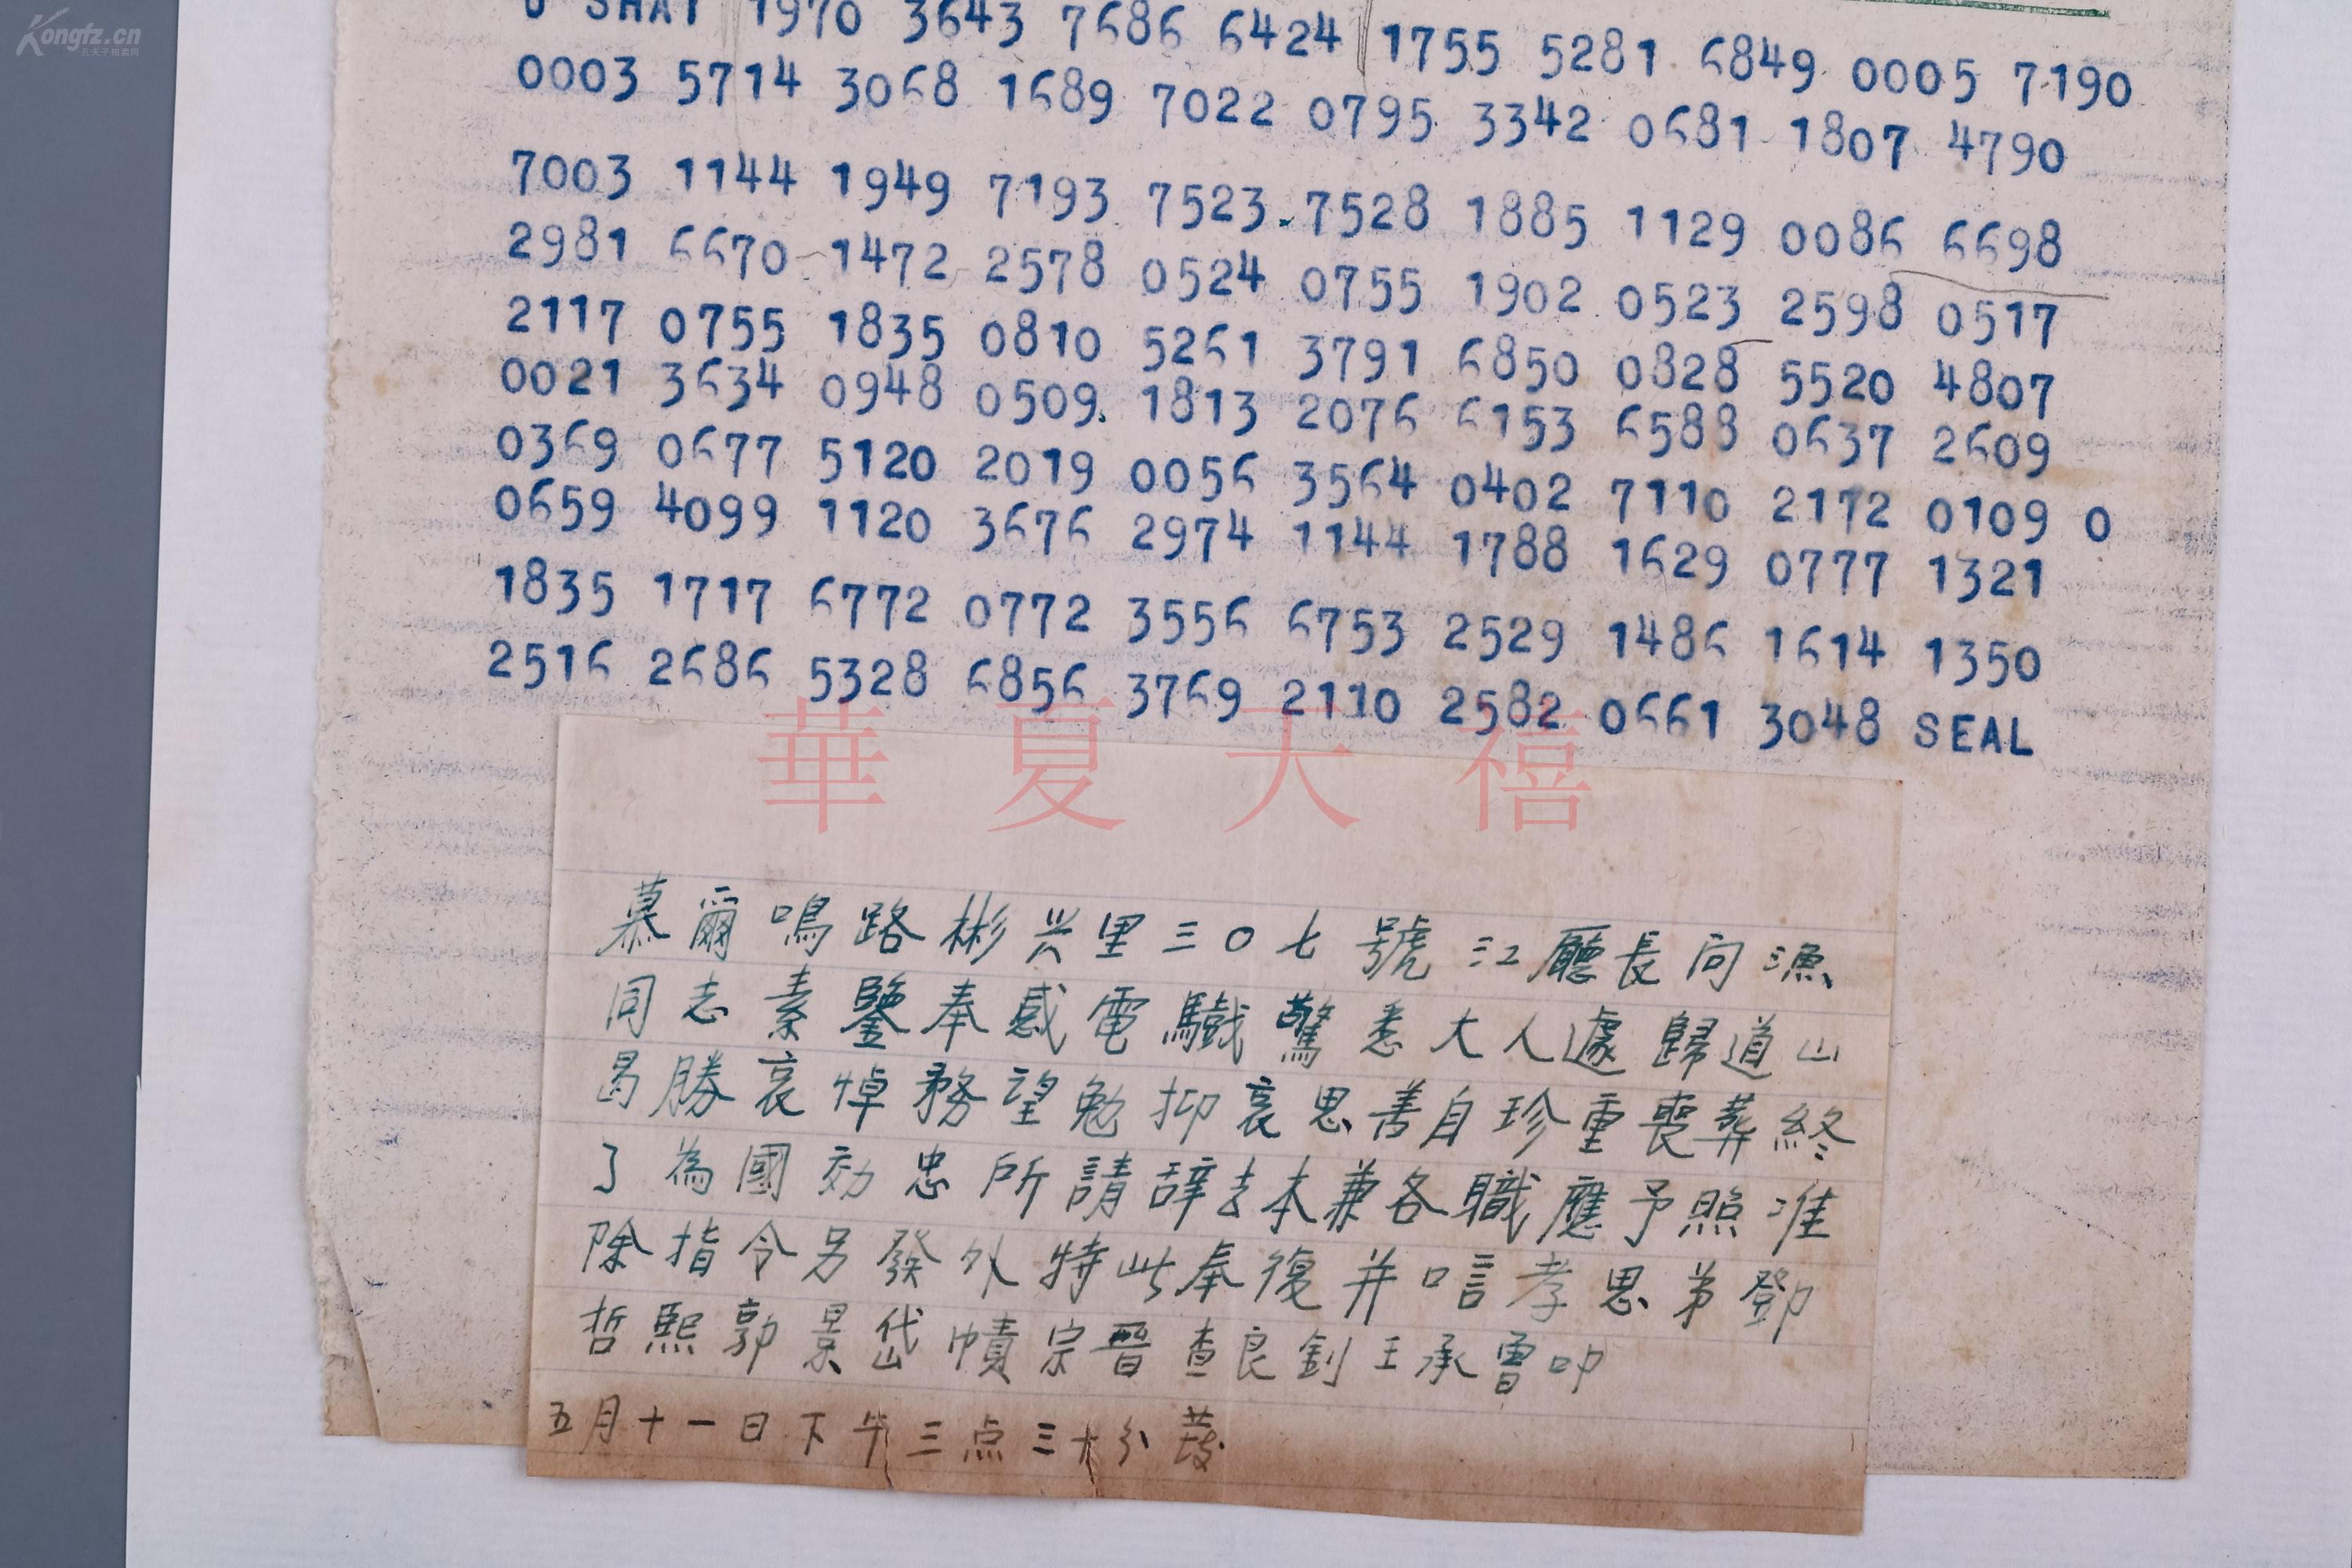 Kongfz.cn
孔夫子拍卖网
SHAI 1970 3643 7686 6424 1755 5281 6849 0005 7190
0003 5714 3068 1689 7022 0795 3342 0681 1807 4790
7003 1144 1949 7193 7523 7528 1885 1129 0086 6698
2981 6670 1472 2578 0524 0755 1902 0523 2598 0517
2117 0755 1835 0810 5261 3791 6850 0828 5520 4807
0021 3634 0948 0509 1813 2076 6153 6588 0637 2609
0369 0677 5120 2019 0056 3564 0402 7110 2172 0109 0
0659 4099 1120 3676 2974 1144 1788 1629 0777 1321
1835 1717 6772 0772 3556 6753 2529 1486 1614 1350
2516 2686 5328 6856 3769 2110 2582 0661 3048 SEAL
華夏天禧
慕爾鳴路彬兴里三〇七號江廳長向漁
同志素鑒奉感電驖驚悉大人遽歸道山
曷勝哀悼務望勉抑哀思善自珍重喪葬終
了為國効忠所請辞去本兼各職應予照准
除指令另發外特此奉復并唁孝思弟鄧
哲熙郭景岱幘宗晉查良釗王承曾叩
五月十一日下午三点三十分